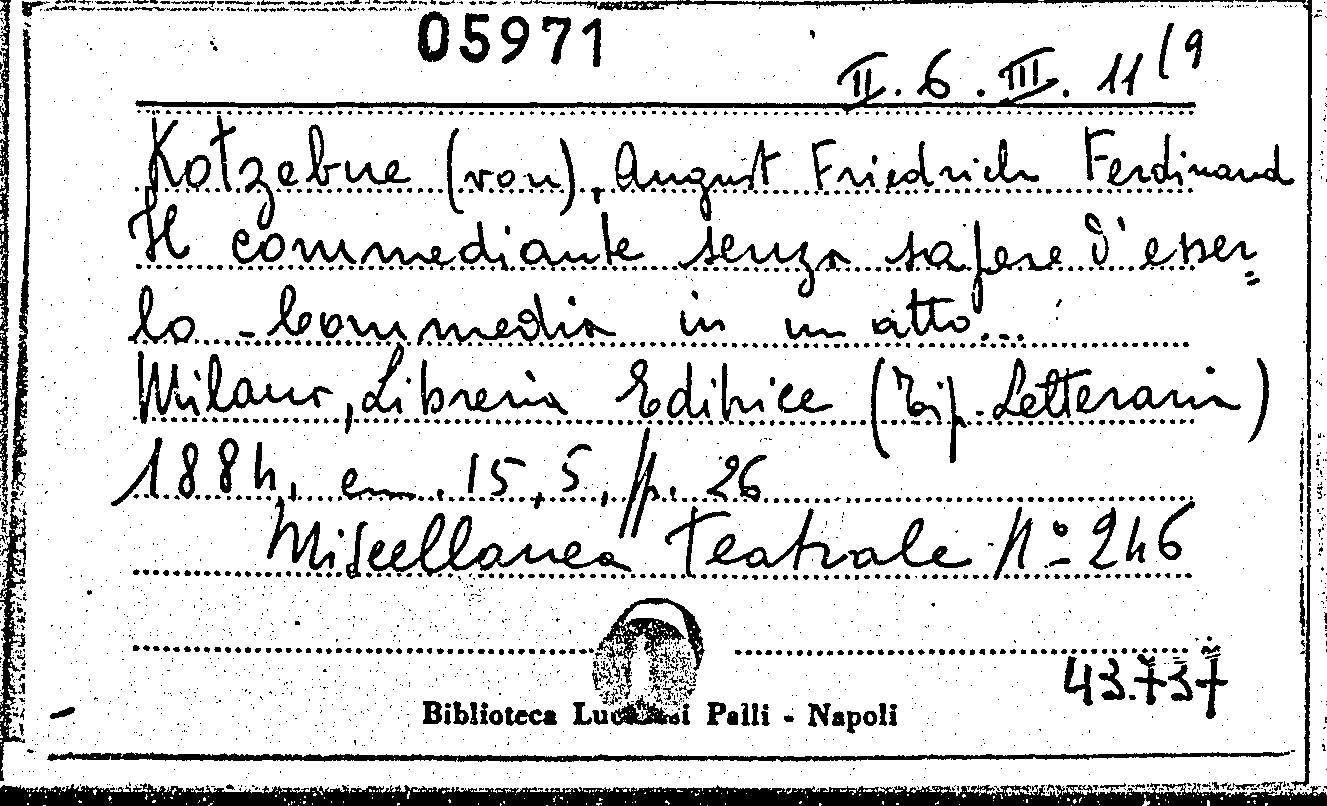 05971
II. 6. III. 11/9
Kotzebue (von), August Friedrich Ferdinand
Il commediante senza sapere d'esser=
lo - Commedia in un atto...
Milano, Libreria Editrice (Tip. Letteraria)
1884, cm. 15,5, pp. 26
Miscellanea Teatrale N° 246
43.737
Biblioteca Lucchesi Palli - Napoli